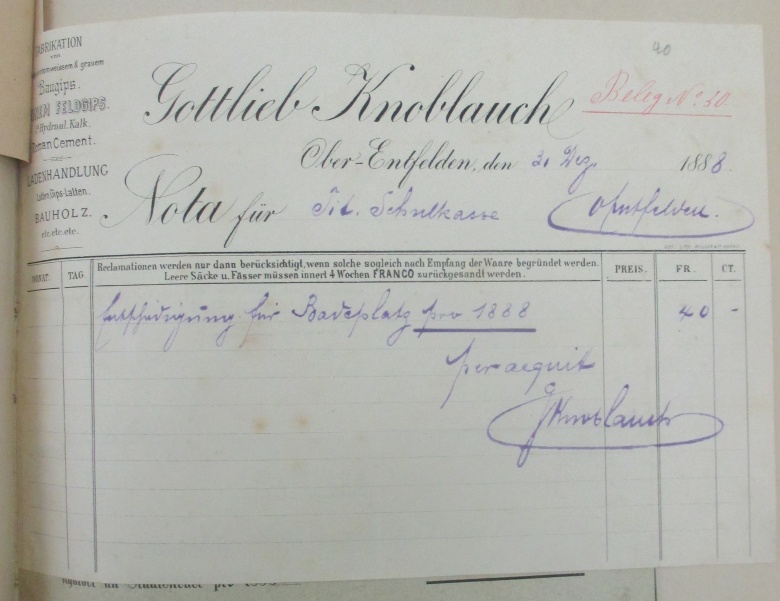 90
FABRIKATION
weissem & grauem
Baugips.
FELDGIPS.
Hydraul. Kalk.
Roman Cement.
LADENHANDLUNG
Latten, Gips-Latten.
BAUHOLZ.
etc. etc. etc.
Gottlieb Knoblauch
Beleg No. 20.
Ober-Entfelden, den 31 Dez. 1888
Nota für Tit. Schulkasse Obentfelden.
MONAT. TAG. Reclamationen werden nur dann berücksichtigt, wenn solche sogleich nach Empfang der Waare begründet werden. PREIS. FR. CT.
Leere Säcke u. Fässer müssen innert 4 Wochen FRANCO zurückgesandt werden.
Entschädigung für Badeplatz pro 1888 40 -
per acquit
G Knoblauch